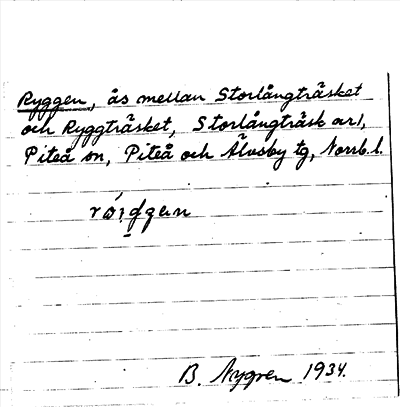 Ryggen, ås mellan Storlångträsket
och Ryggträsket, Storlångträsk arl,
Piteå sn, Piteå och Älvsby tg, Norrb. l.
B. Nygren 1934.